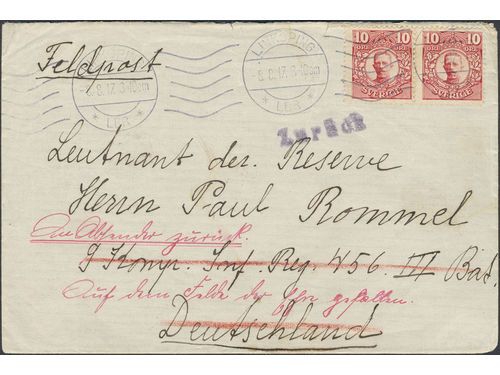 10 10 10 10
SVERIGE SVERIGE
LINKÖPING
-8.8.17. 3-10em
* LBR *
Feldpost
Zurück
Leutnant der Reserve
Herrn Paul Rommel
An Absender zurück.
9 Komp. Inf. Reg. 456. III Bat.
Auf dem Felde der Ehre gefallen.
Deutschland